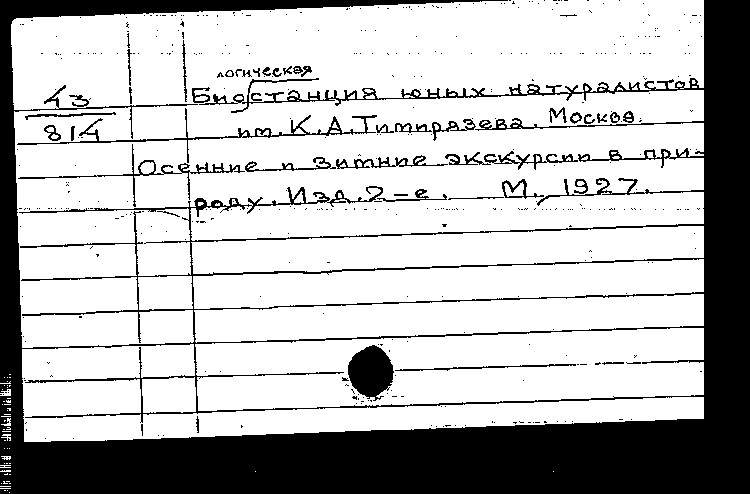 логическая
43 Био/станция юных натуралистов
814 им. К.А.Тимирязева. Москва.
Осенние и зимние экскурсии в при-
роду. Изд. 2-е. М., 1927.